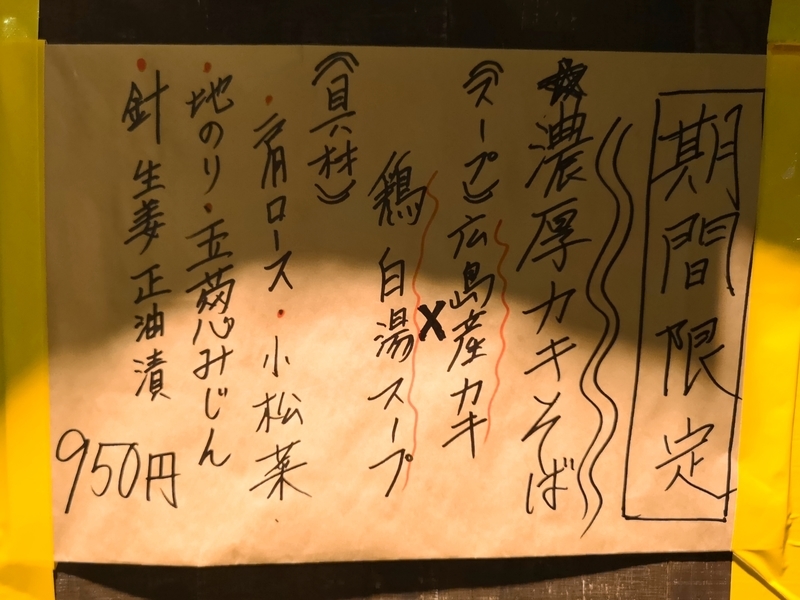 期間限定
★濃厚カキそば
《スープ》広島産カキ
×
鶏白湯スープ
《具材》
・肩ロース・小松菜
・地のり・玉葱みじん
・針生姜正油漬
950円